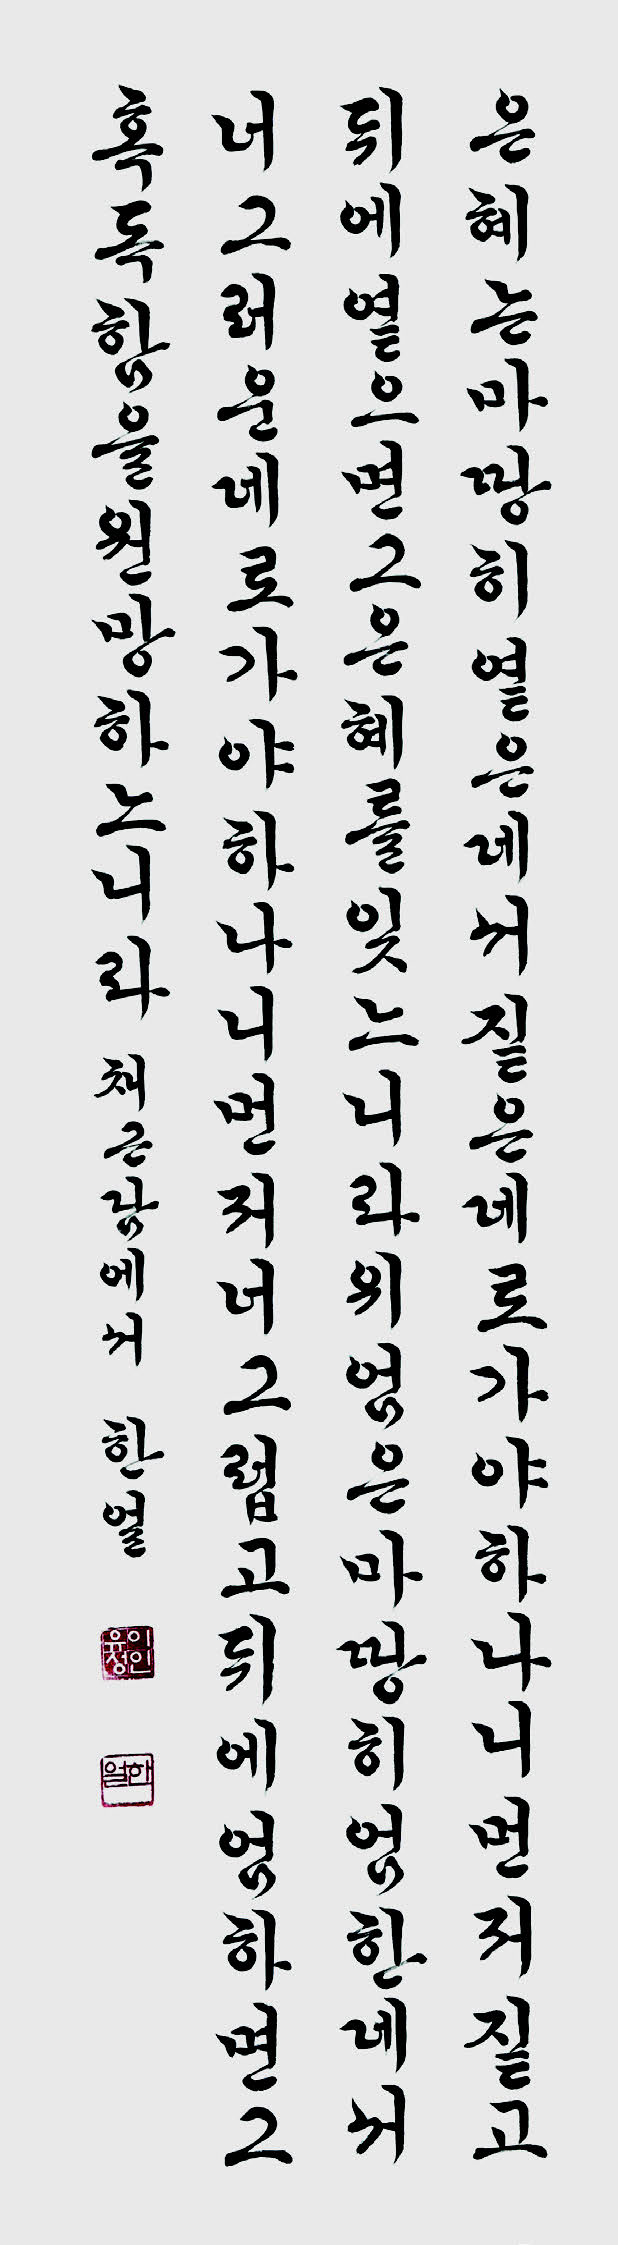 은혜는마땅히옅은데서짙은데로가야하나니먼저짙고
뒤에옅으면그은혜를잊느니라위엄은마땅히엄한데서
너그러운데로가야하나니먼저너그럽고뒤에엄하면그
혹독함을원망하느니라 채근담에서 한얼
한얼